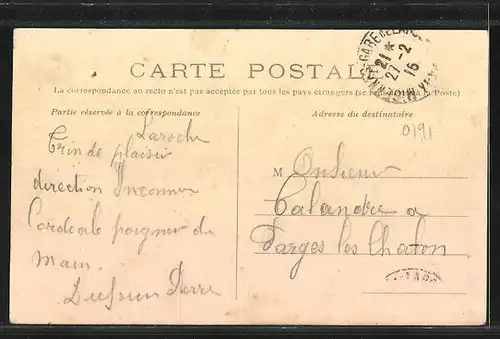 CARTE POSTALE
La correspondance au recto n'est pas acceptée par tous les pays étrangers (se à la Poste)
Partie réservée à la correspondance
Adresse du destinataire
GARE DE LAROCHE
21 *
27 - 2
15
YONNE
0191
Laroche
Trin de plaisir
direction Inconnu
Cordiale poigner de
main.
Dufour Pierre
M Onsieur
Calandre a
Farges les Chalon